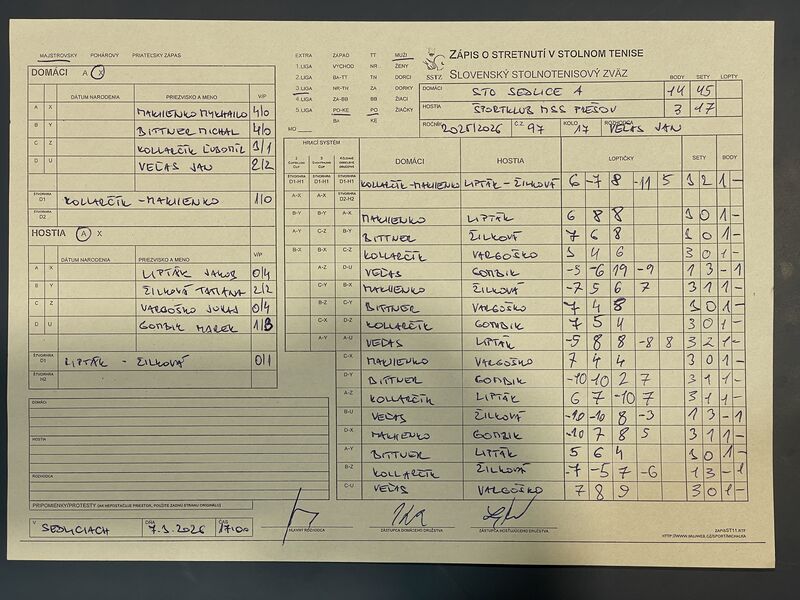 MAJSTROVSKÝ POHÁROVÝ PRIATEĽSKÝ ZÁPAS
DOMÁCI A X
DÁTUM NARODENIA PRIEZVISKO A MENO V/P
A X MAKIIENKO MYKHAILO 4/0
B Y BITTNER MICHAL 4/0
C Z KOLLARČÍK ĽUBOMÍR 3/1
D U VEĽAS JAN 2/2
ŠTVORHRA D1 KOLLARČÍK - MAKIIENKO 1/0
ŠTVORHRA D2
HOSTIA A X
DÁTUM NARODENIA PRIEZVISKO A MENO V/P
A X LIPTÁK JAKUB 0/4
B Y ŽILKOVÁ TATIANA 2/2
C Z VARGOŠKO 0/4
D U GOMBIK MAREK 1/3
ŠTVORHRA LIPTÁK - ŽILKOVÁ 0/1
ŠTVORHRA H2
DOMÁCI
HOSTIA
ROZHODCA
PRIPOMIENKY/PROTESTY (AK NEPOSTAČUJE PRIESTOR, POUŽITE ZADNÚ STRANU ORIGINÁLU)
V SEDLICIACH DŇA 7.3.2026 ČAS 17:00
EXTRA ZÁPAD TT MUŽI
1.LIGA VÝCHOD NR ŽENY
2.LIGA BA-TT TN DORCI
3.LIGA NR-TN ZA DORKY
4.LIGA ZA-BB BB ŽIACI
5.LIGA PO-KE PO ŽIAČKY
BA KE
MO
SSTZ
ZÁPIS O STRETNUTÍ V STOLNOM TENISE
SLOVENSKÝ STOLNOTENISOVÝ ZVÄZ
BODY SETY LOPTY
DOMÁCI STO SEDLICE A 14 45
HOSTIA ŠPORTKLUB MSS PREŠOV 3 17
ROČNÍK 2025/2026 Č.Z. 97 KOLO 17 ROZHODCA VEĽAS JAN
HRACÍ SYSTÉM
DOMÁCI HOSTIA LOPTIČKY SETY BODY
D1-H1 D1-H1 D1-H1 KOLLARČÍK-MAKIIENKO LIPTÁK - ŽILKOVÁ 6 -7 8 -11 5 3 2 1 -
A-X A-X D2-H2
B-Y B-Y A-X MAKIIENKO LIPTÁK 6 8 8 3 0 1 -
A-Y C-Z B-Y BITTNER ŽILKOVÁ 7 6 8 3 0 1 -
B-X B-X C-Z KOLLARČÍK VARGOŠKO 3 4 6 3 0 1 -
A-Z D-U VEĽAS GOMBIK -5 -6 19 -9 1 3 - 1
C-Y B-X MAKIIENKO ŽILKOVÁ -7 5 6 7 3 1 1 -
B-Z C-Y BITTNER VARGOŠKO 7 4 8 3 0 1 -
C-X D-Z KOLLARČÍK GOMBIK 7 5 4 3 0 1 -
A-Y A-U VEĽAS LIPTÁK -5 8 8 -8 8 3 2 1 -
C-X MAKIIENKO VARGOŠKO 7 4 4 3 0 1 -
D-Y BITTNER GOMBIK -10 10 2 7 3 1 1 -
A-Z KOLLARČÍK LIPTÁK 6 7 -10 7 3 1 1 -
B-U VEĽAS ŽILKOVÁ -10 -10 8 -3 1 3 - 1
D-X MAKIIENKO GOMBIK -10 7 8 5 3 1 1 -
A-Y BITTNER LIPTÁK 5 6 4 3 0 1 -
B-Z KOLLARČÍK ŽILKOVÁ -7 -5 7 -6 1 3 - 1
C-U VEĽAS VARGOŠKO 7 8 9 3 0 1 -
HLAVNÝ ROZHODCA ZÁSTUPCA DOMÁCEHO DRUŽSTVA ZÁSTUPCA HOSŤUJÚCEHO DRUŽSTVA
ZAPISST11.RTF